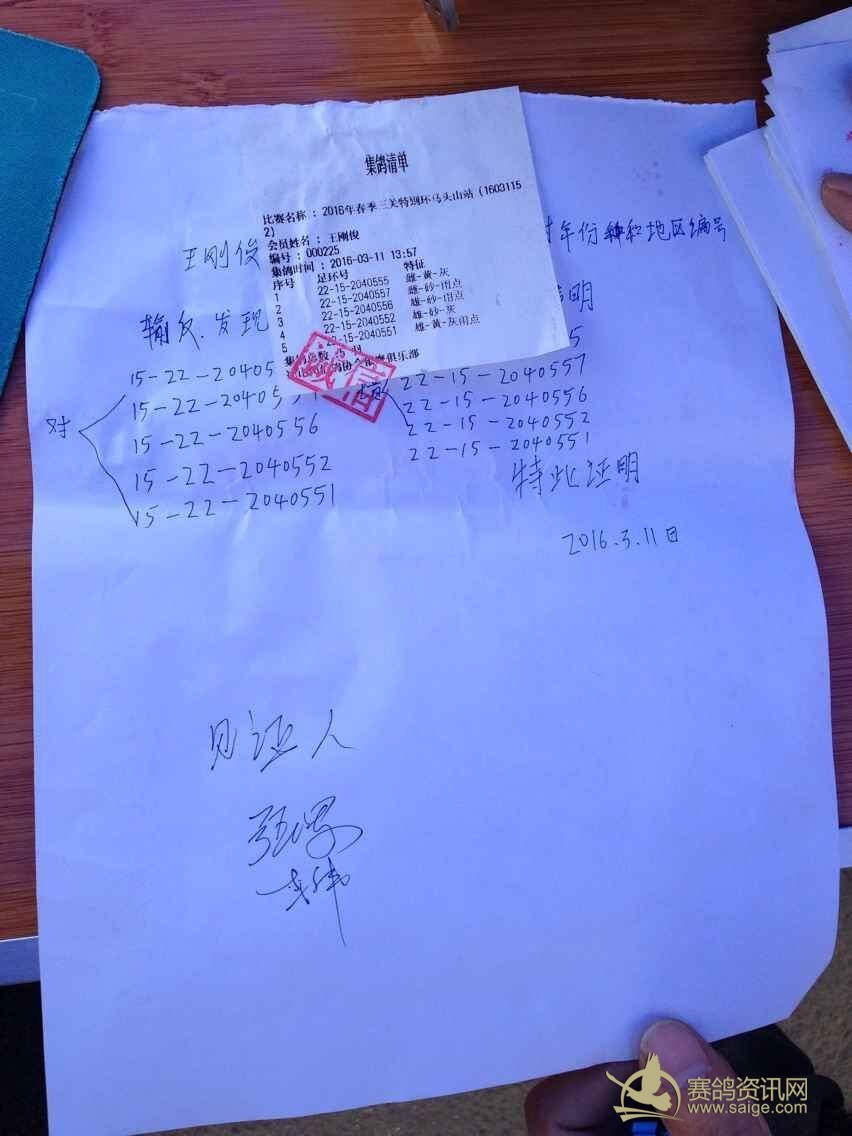 集鸽清单
比赛名称：2016年春季三关特别环马头山站（1603115
2）
会员姓名：王刚俊
编号：000225
集鸽时间：2016-03-11 13:57
序号 足环号 特征
1 22-15-2040555 雌-黄-灰
2 22-15-2040557 雌-砂-雨点
3 22-15-2040556 雄-砂-雨点
4 22-15-2040552 雄-砂-灰
5 22-15-2040551 雄-黄-灰雨点
集鸽总数
俱乐部
王刚俊 时年份和地区编号
输反.发现 明
15-22-20405 5
15-22-204055 22-15-2040557
对 15-22-2040556 22-15-2040556
15-22-2040552 22-15-2040552
15-22-2040551 22-15-2040551
特此证明
2016.3.11日
见证人
赛鸽资讯网
www.saige.com